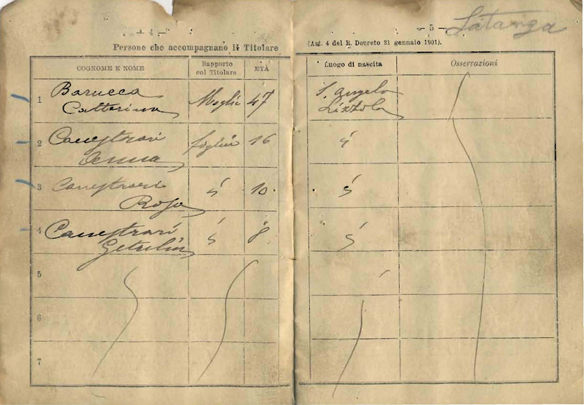 - 4 -
Persone che accompagnano il Titolare
COGNOME E NOME
Rapporto
col Titolare
ETÀ
1
Barucca
Catterina
Moglie
47
2
Canestrari
Anna
figlia
16
3
Canestrari
Rosa
"
10
4
Canestrari
"
8
5
6
7
- 5 -
(Art. 4 del R. Decreto 31 gennaio 1901).
Luogo di nascita
Osservazioni
S. Angelo
Lizzola
"
"
"